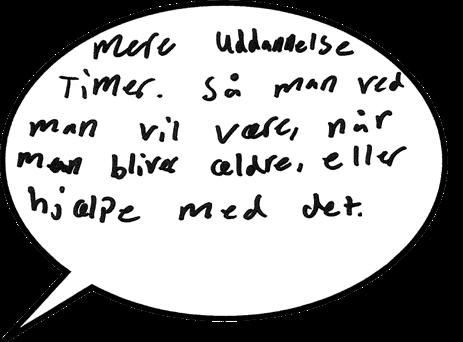 mere uddannelse
Timer. Så man ved
man vil være, når
man bliver ældre, eller
hjælpe med det.